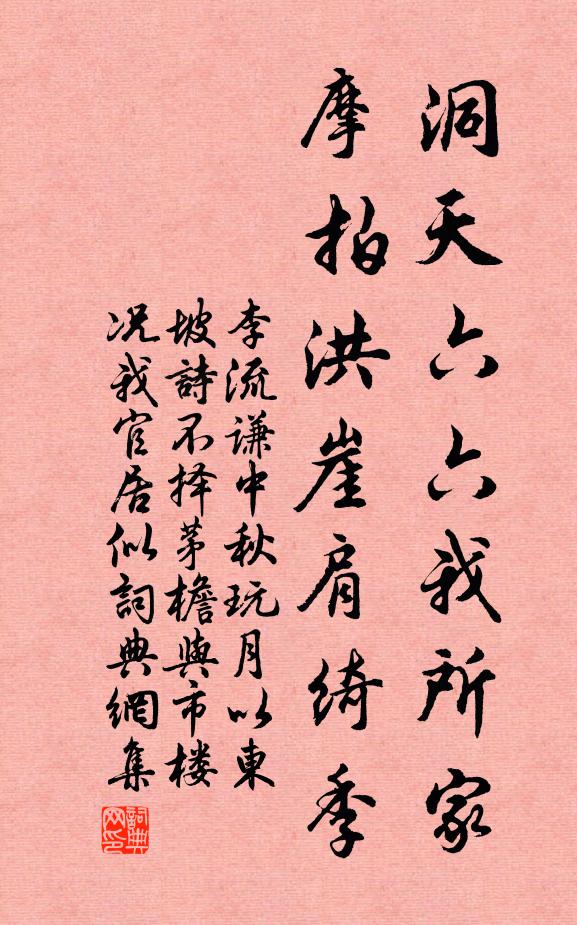 洞天六六我所家
摩拍洪崖肩绮季
李流谦中秋玩月以東
坡詩不择茅檐與市楼
况我官居似詞典網集
詞典网印